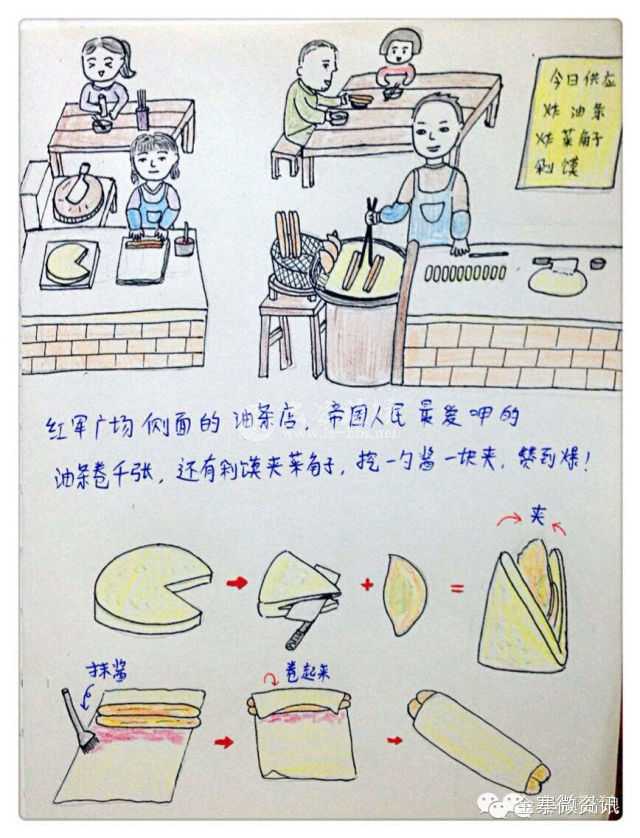 今日供应
炸油条
炸菜角子
剁馍
红军广场侧面的油条店，帝国人民最爱呷的
油条卷千张，还有剁馍夹菜角子，挖一勺酱一块夹，赞到爆！
夹
+
=
抹酱
卷起来
金寨微资讯